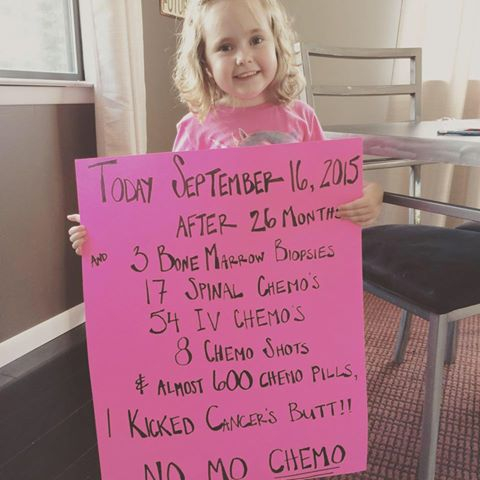 TODAY SEPTEMBER 16, 2015
AFTER 26 MONTHS
AND 3 BONE MARROW BIOPSIES
17 SPINAL CHEMO'S
54 IV CHEMO'S
8 CHEMO SHOTS
& ALMOST 600 CHEMO PILLS,
I KICKED CANCER'S BUTT!!
NO MO CHEMO